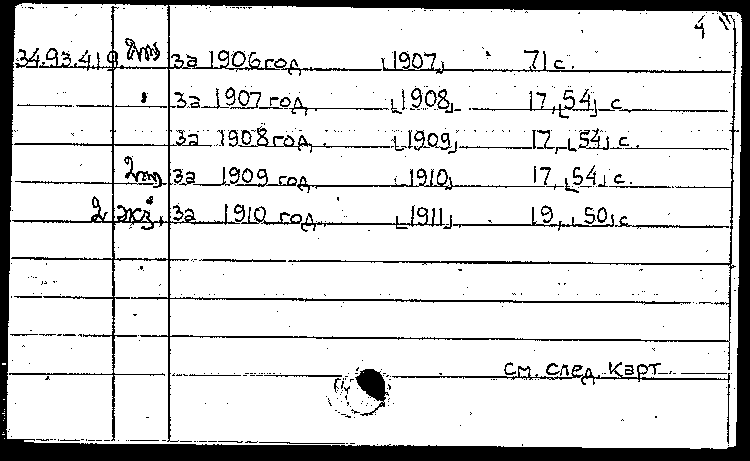 4
34.93.419. за 1906 год [1907] 71 с.
за 1907 год [1908] 17, [54] с.
за 1908 год, [1909] 17, [54] с.
за 1909 год [1910] 17, [54] с.
2 экз. за 1910 год, [1911] 19, [50] с
см. след. карт.